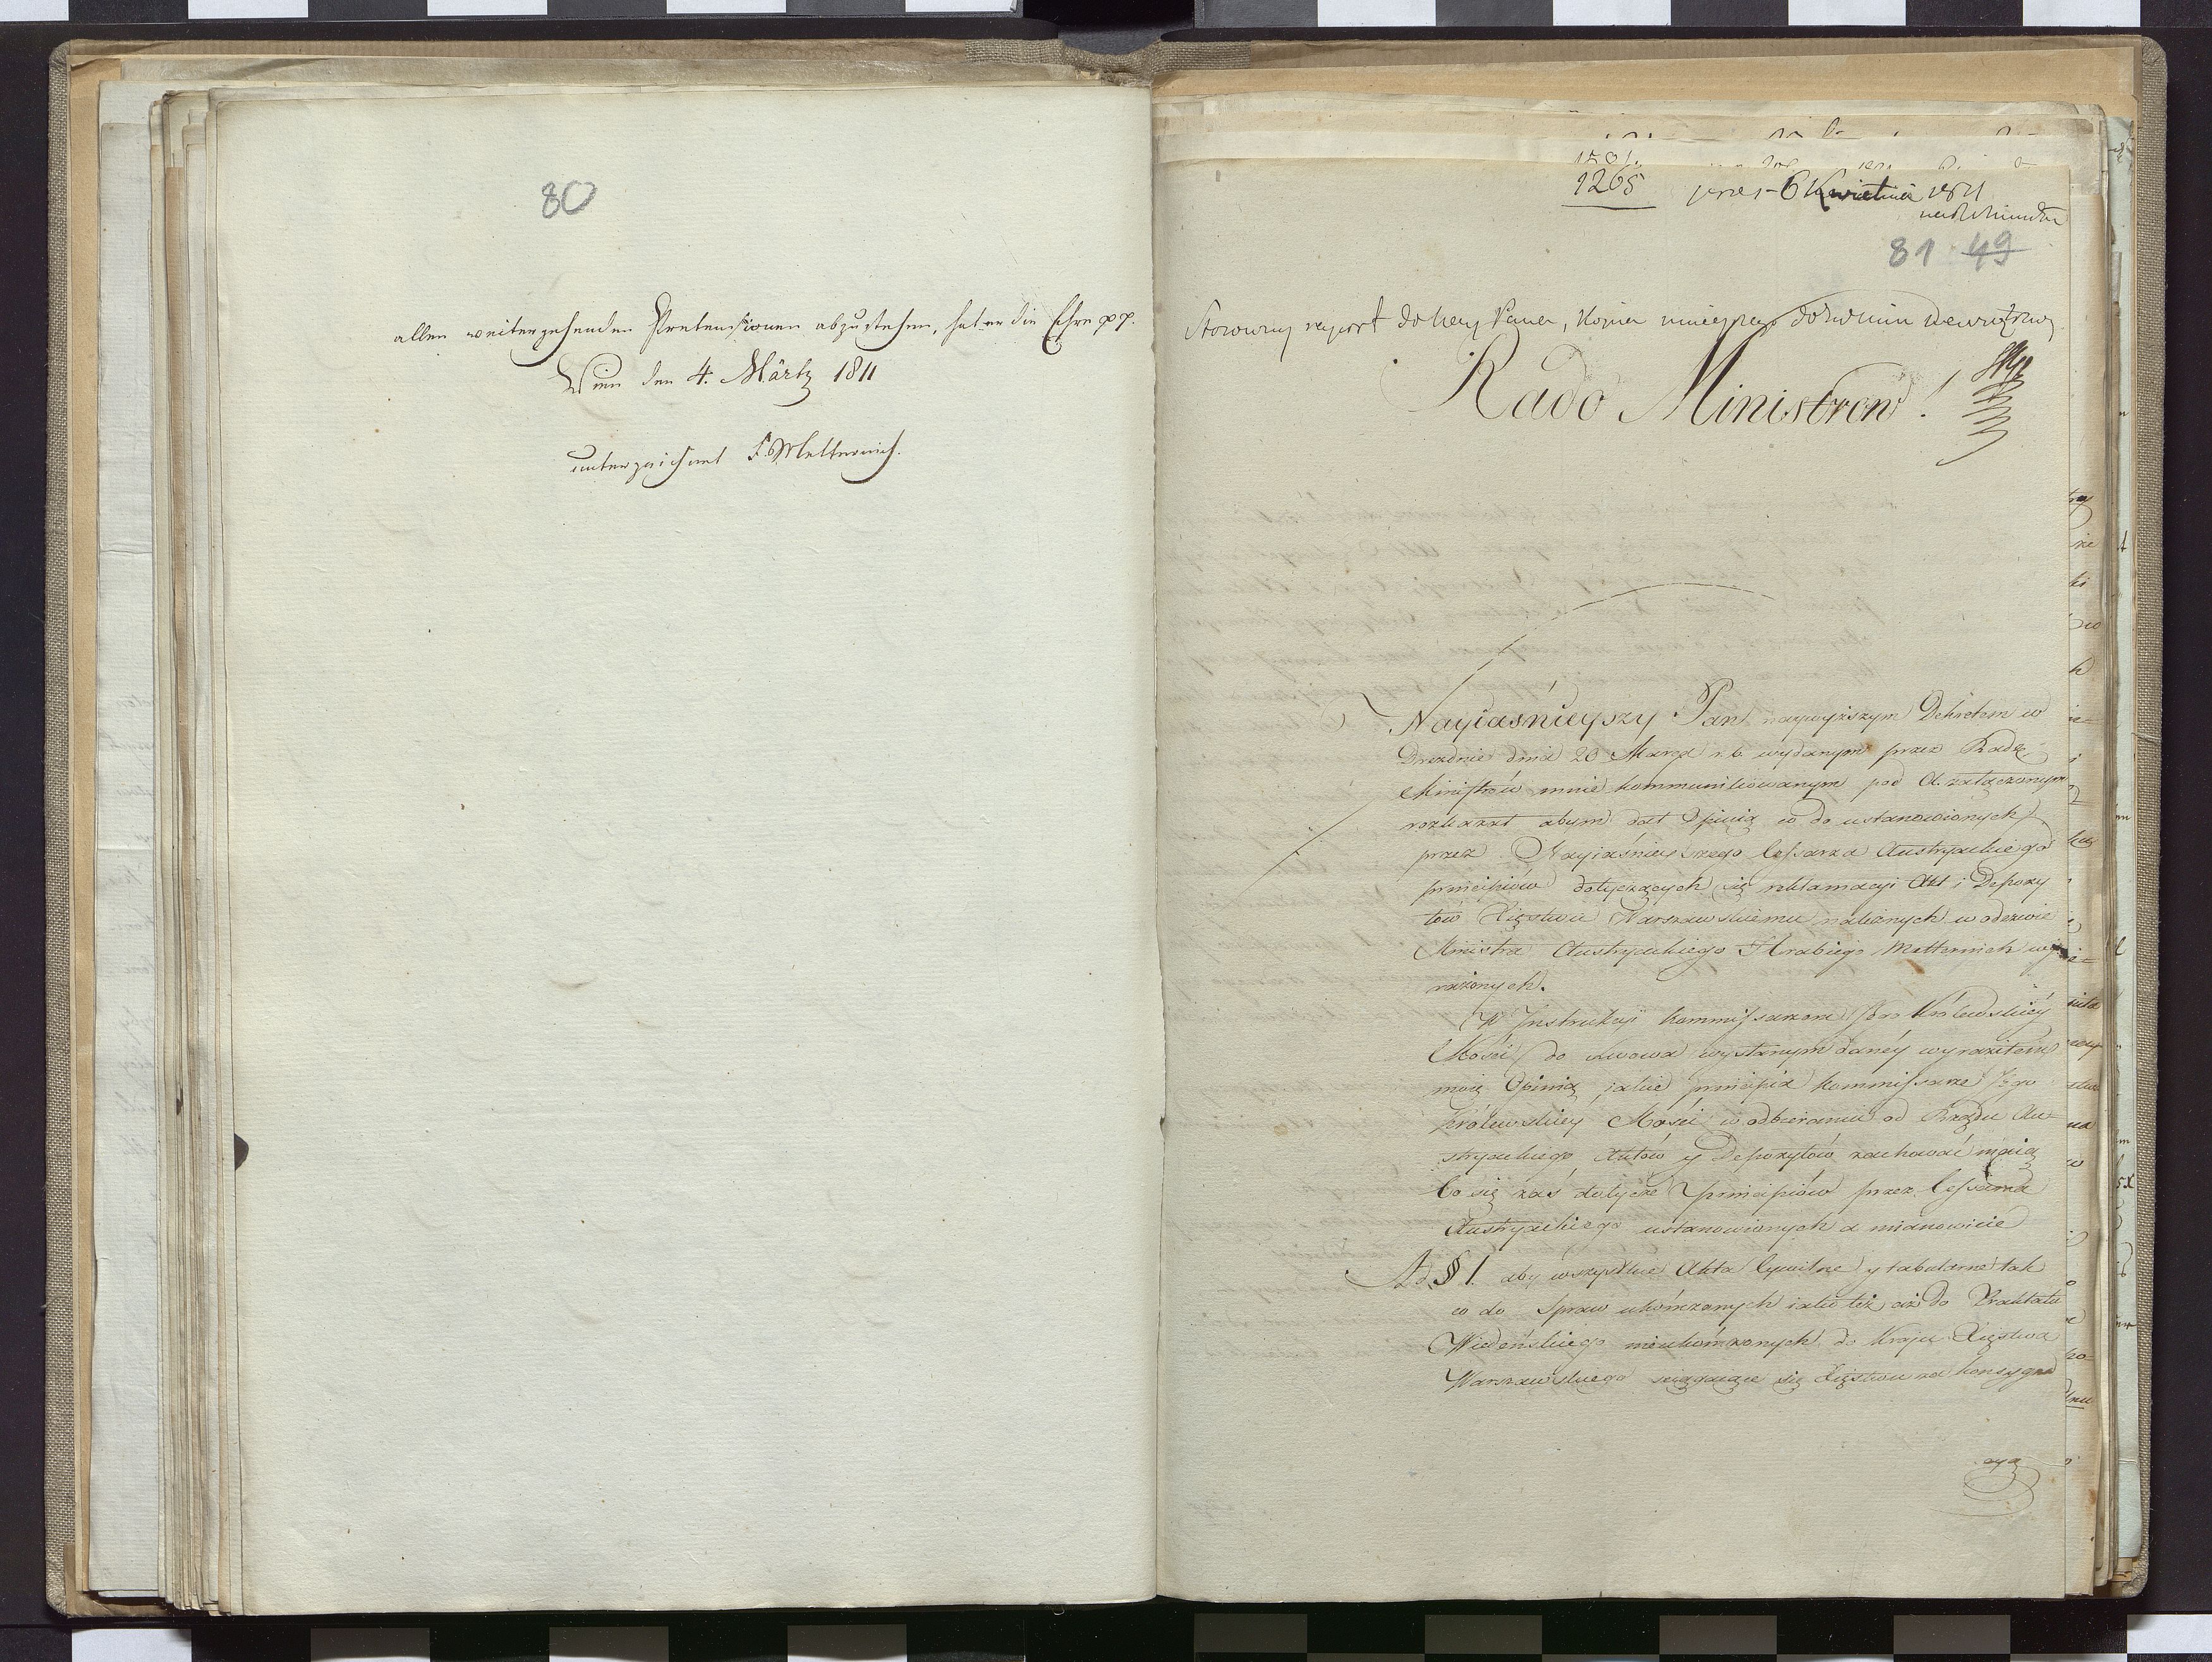 80
allen weitergehenden Pretensionen abzustehen, hat er die Ehre pp.
Wien den 4. Märtz 1811
unterzeichnet F. Metternich.
1265
6 Kwietnia 1811
81 49
Stosowny raport do
Rado Ministrow!
Nayiaśnieyszy Pan naywyższym Dekretem w
Dreznie dnia 20 Marca r. b. wydanym przez Radę
Ministrów mnie kommunikowanym pod A. załączonym
rozkazał abym dał Opinią co do ustanowionych
przez Nayiaśnieyszego Cessarza Austryackiego
princípiów dotyczących się reklamacyi Akt i Depozy
tów Xięstwu Warszawskiemu należnych w odezwie
Ministra Austryackiego Hrabiego Metternich wy
rażonych.
W Instrukcyi Kommissarzom Jego Królewskiéy
Mości do Lwowa wysłanym danéy wyraziłem
moię Opinią iakie principia Kommissarze Jego
Królewskiey Mości w odbieraniu od Rządu Au=
stryackiego Aktów y Depozytów zachować maią
Co się zaś dotycze principiów przez Cessarza
Austryackiego ustanowionych a mianowicie
Ad § 1. aby wszystkie Akta Cywilne y tabularne tak
co do Spraw ukończonych iako też aż do Traktatu
Wiedeńskiego nieukończonych do Kraju Xięstwa
Warszawskiego ściągaiące się Xięstwu za konsygna
cyą